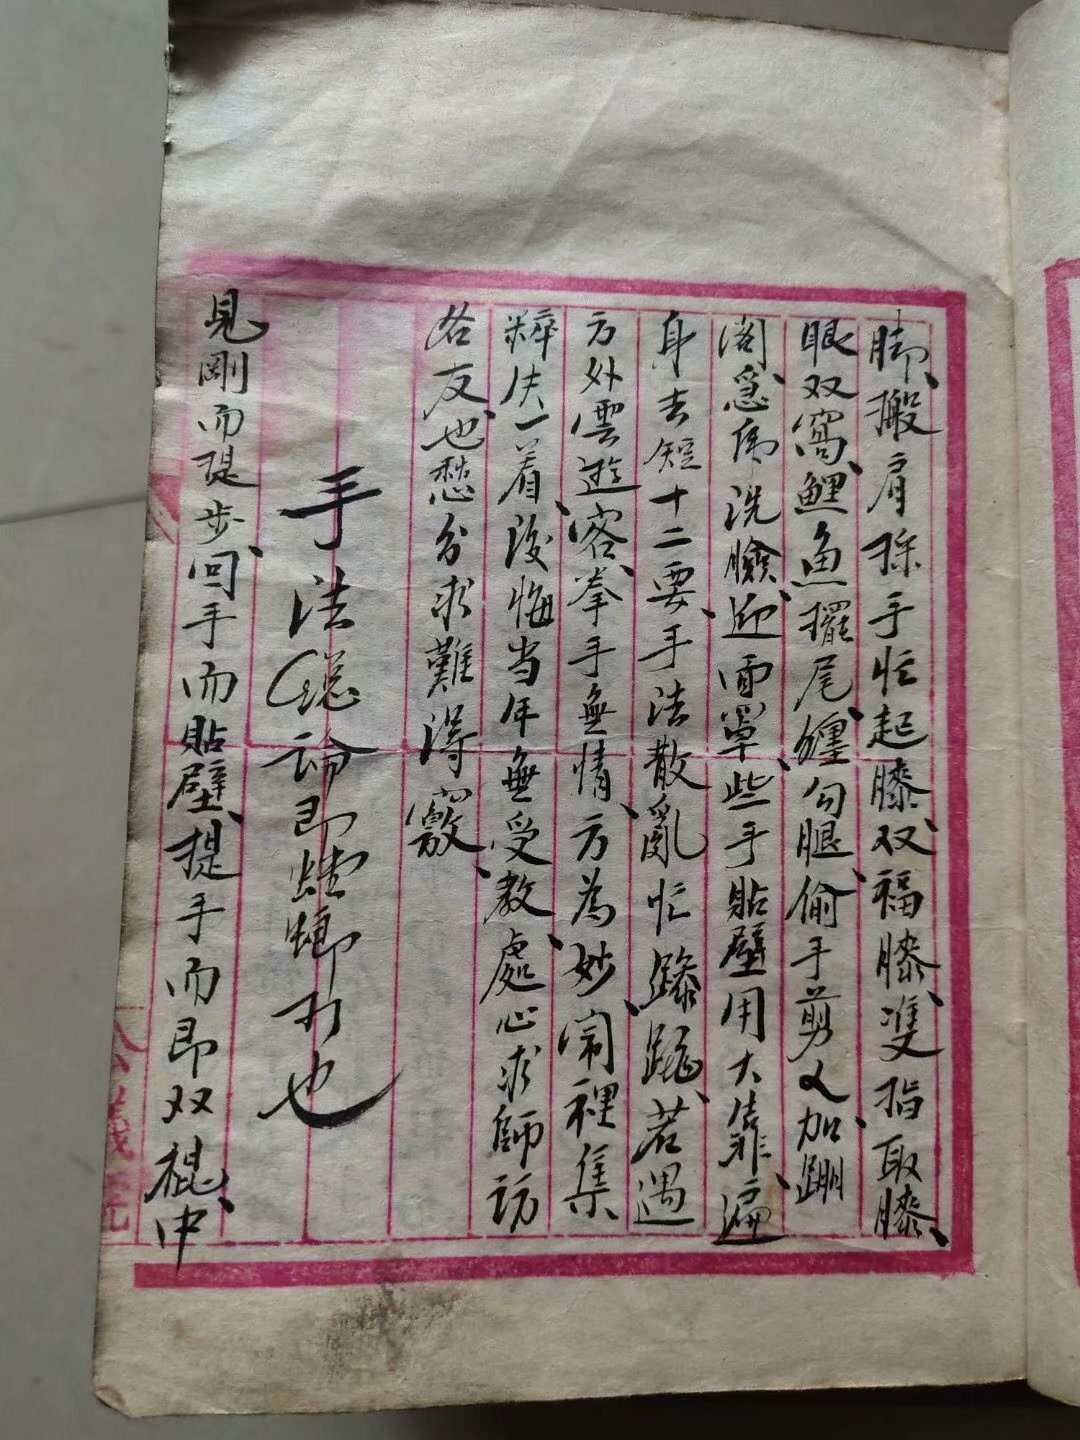 脚、搬肩採手忙起膝、双福膝、隻指取膝、
眼双窩、鯉魚擺尾、纏勾腿、偷手剪又加、蹦
阁、急庙洗臉、迎面單些手貼壁用大靠、遍
身去短十二要、手法散亂忙跺跳、若遇
方外雲遊客、拳手無情、方為妙、閙裡集
粹失一着、後悔当年無受教、處心求師访
名友、也愁
求難得竅、
手法總論即螳螂行也
見剛而提步、回手而貼壁、提手而即双棍、中